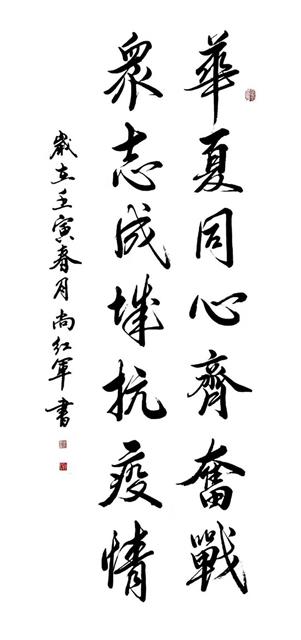 華夏同心齊奮戰
衆志成城抗疫情
歲在壬寅春月尚红军書